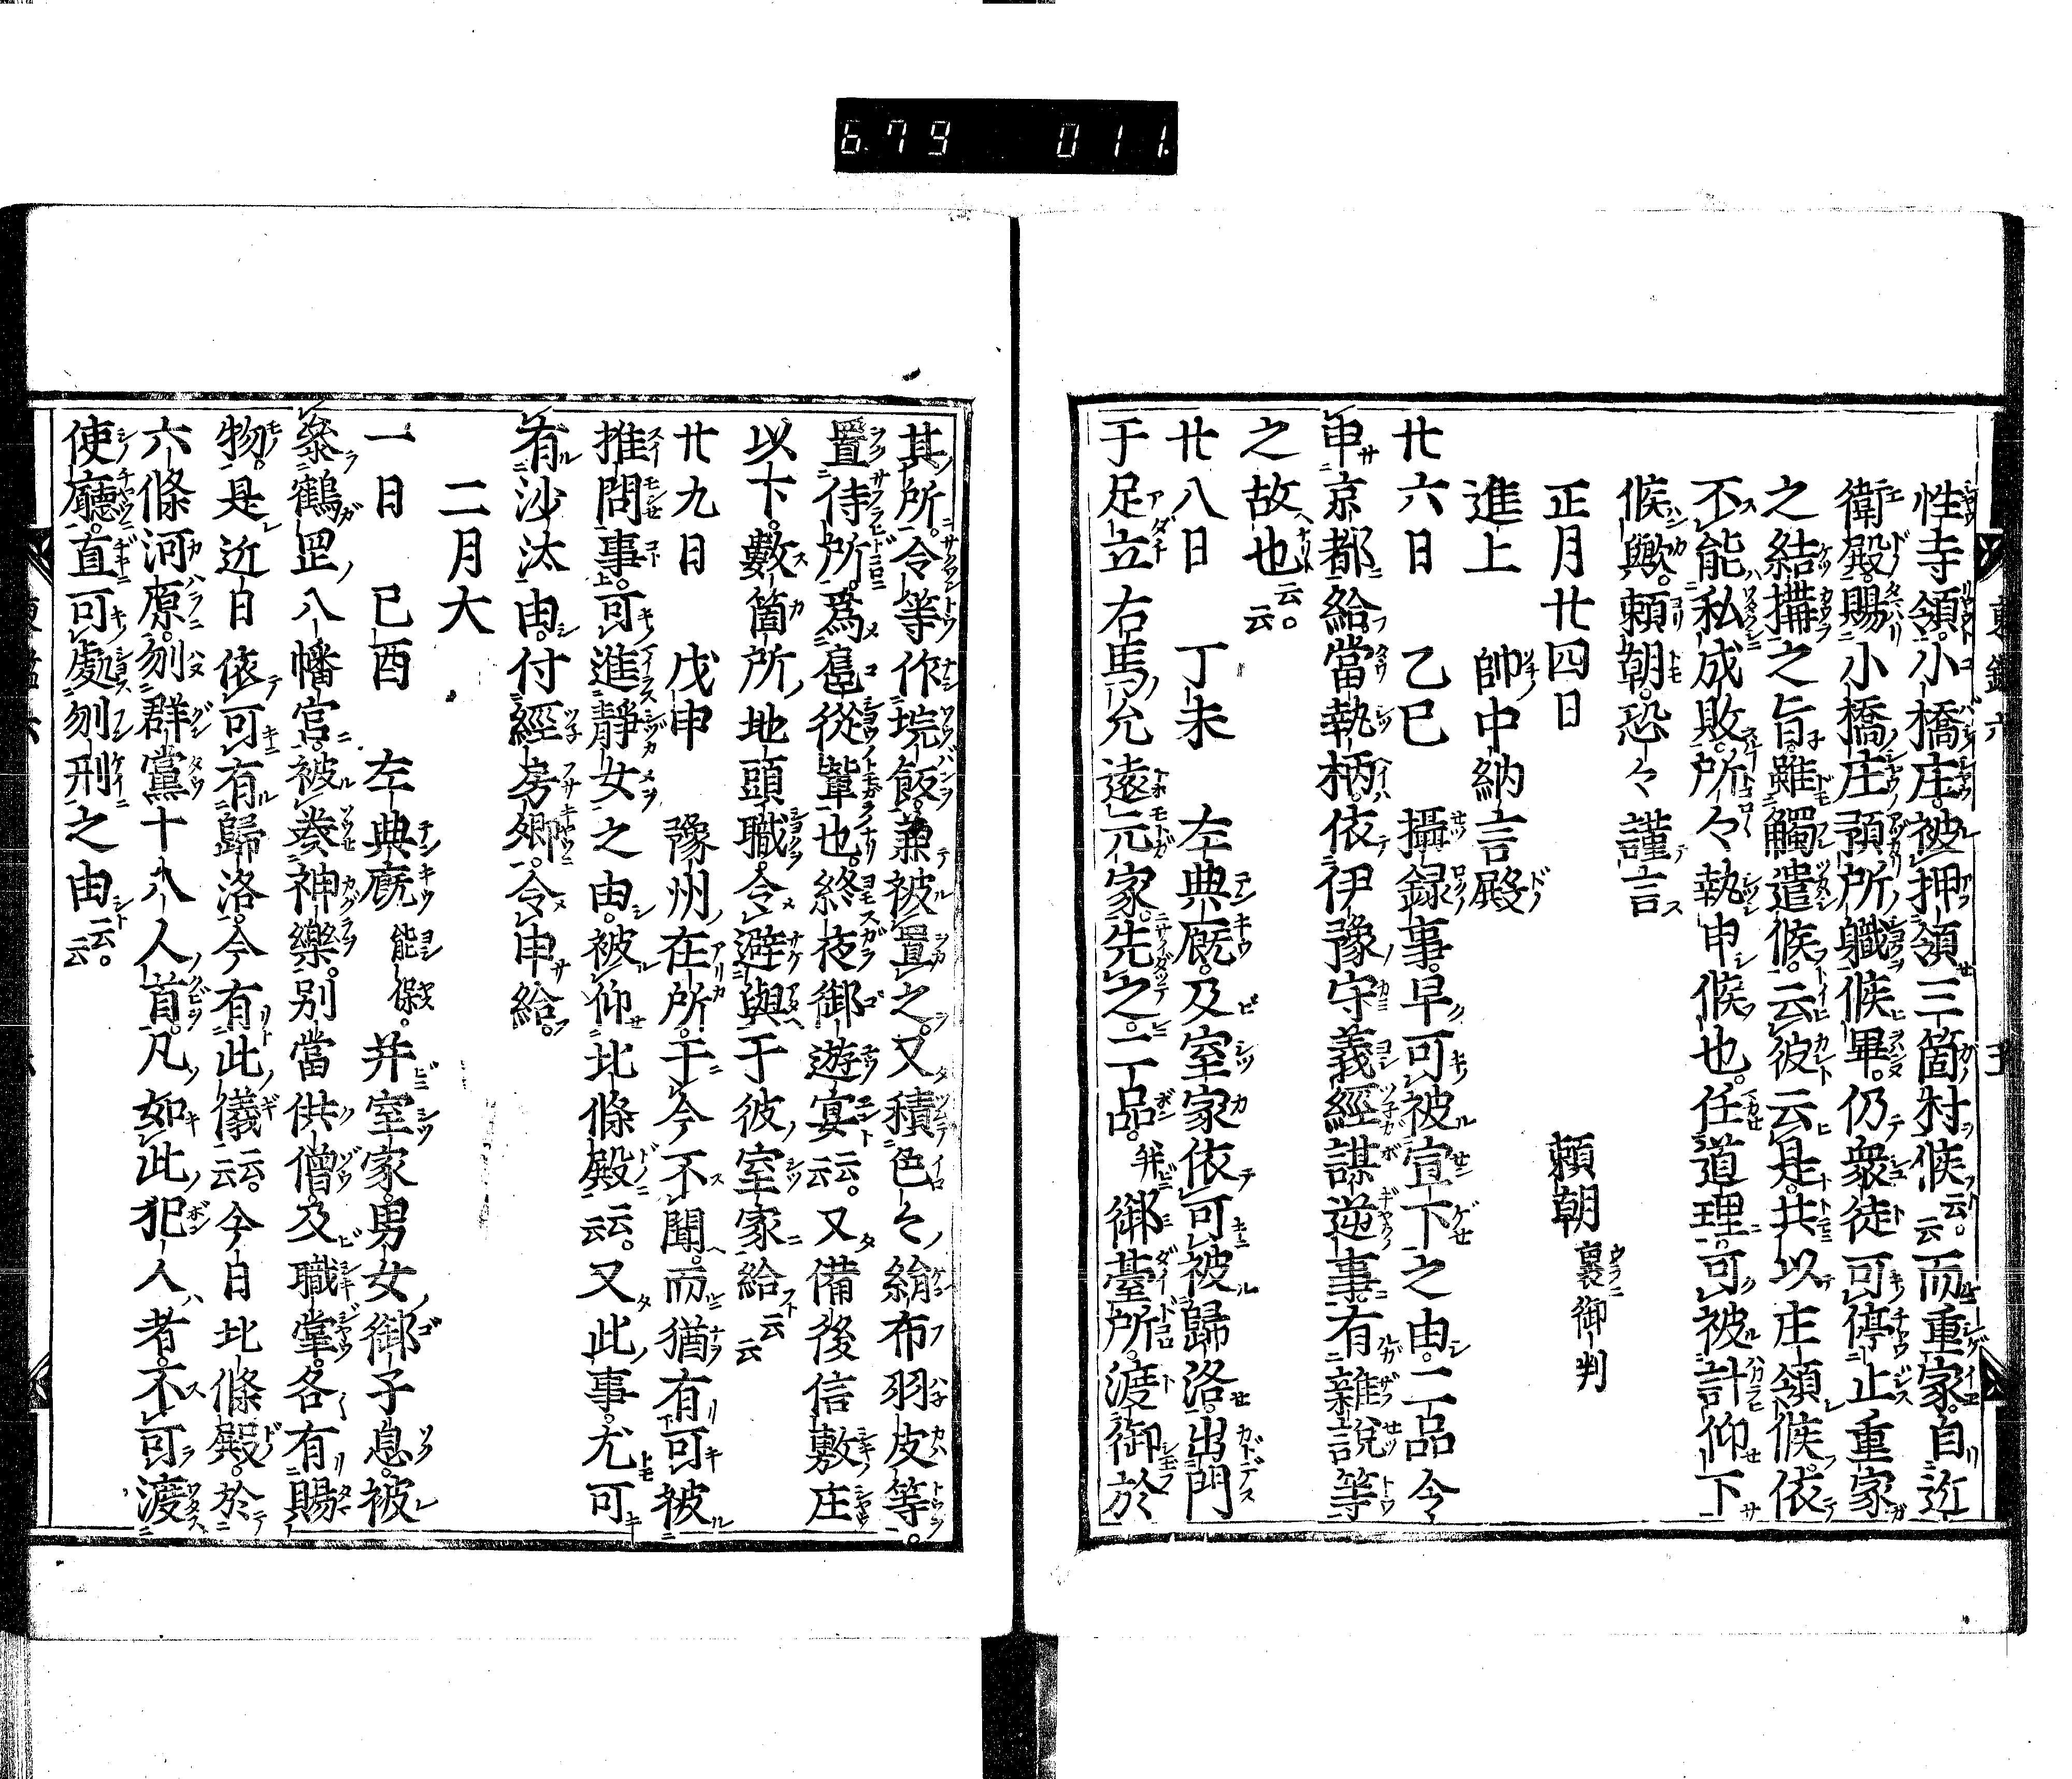 6.79 011.
性寺領。小橋庄。被押領三箇村候云云。而重家。自近
衛殿。賜小橋庄預所職候畢。仍衆徒可停止重家
之結搆之旨。雖觸遣候。云彼云是。共以庄領候。依
不能私成敗。所々執申候也。任道理。可被計仰下
候歟。頼朝恐々謹言
正月廿四日 頼朝裏御判
進上 帥中納言殿
廿六日 乙巳 攝録事。早可被宣下之由。二品令
申京都給。當執柄。依伊豫守義經謀逆事有雜說等
之故也云云。
廿八日 丁未 左典厩。及室家依可被歸洛。出門
于足立右馬允遠元家。先之。二品。并御臺所。渡御於
其所。令等作垸飯。兼被置之。又積色々絹布羽皮等。
置待所。爲扈從輩也。終夜御遊宴云云。又備後信敷庄
以下。數箇所地頭職。令避與于彼室家給云云
廿九日 戊申 豫州在所。于今不聞。而猶有可被
推問事。可進靜女之由。被仰北條殿云云。又此事。尤可
有沙汰由。付經房卿。令申給。
二月大
一日 已酉 左典厩能保。并室家。男女御子息。被
參鶴罡八幡宮。被奏神樂。別當供僧。及職掌。各有賜
物。是近日依可有歸洛。今有此儀云云。今日北條殿。於
六條河原。刎群黨十八人首。凡如此犯人者。不可渡
使廳。直可處刎刑之由云云。